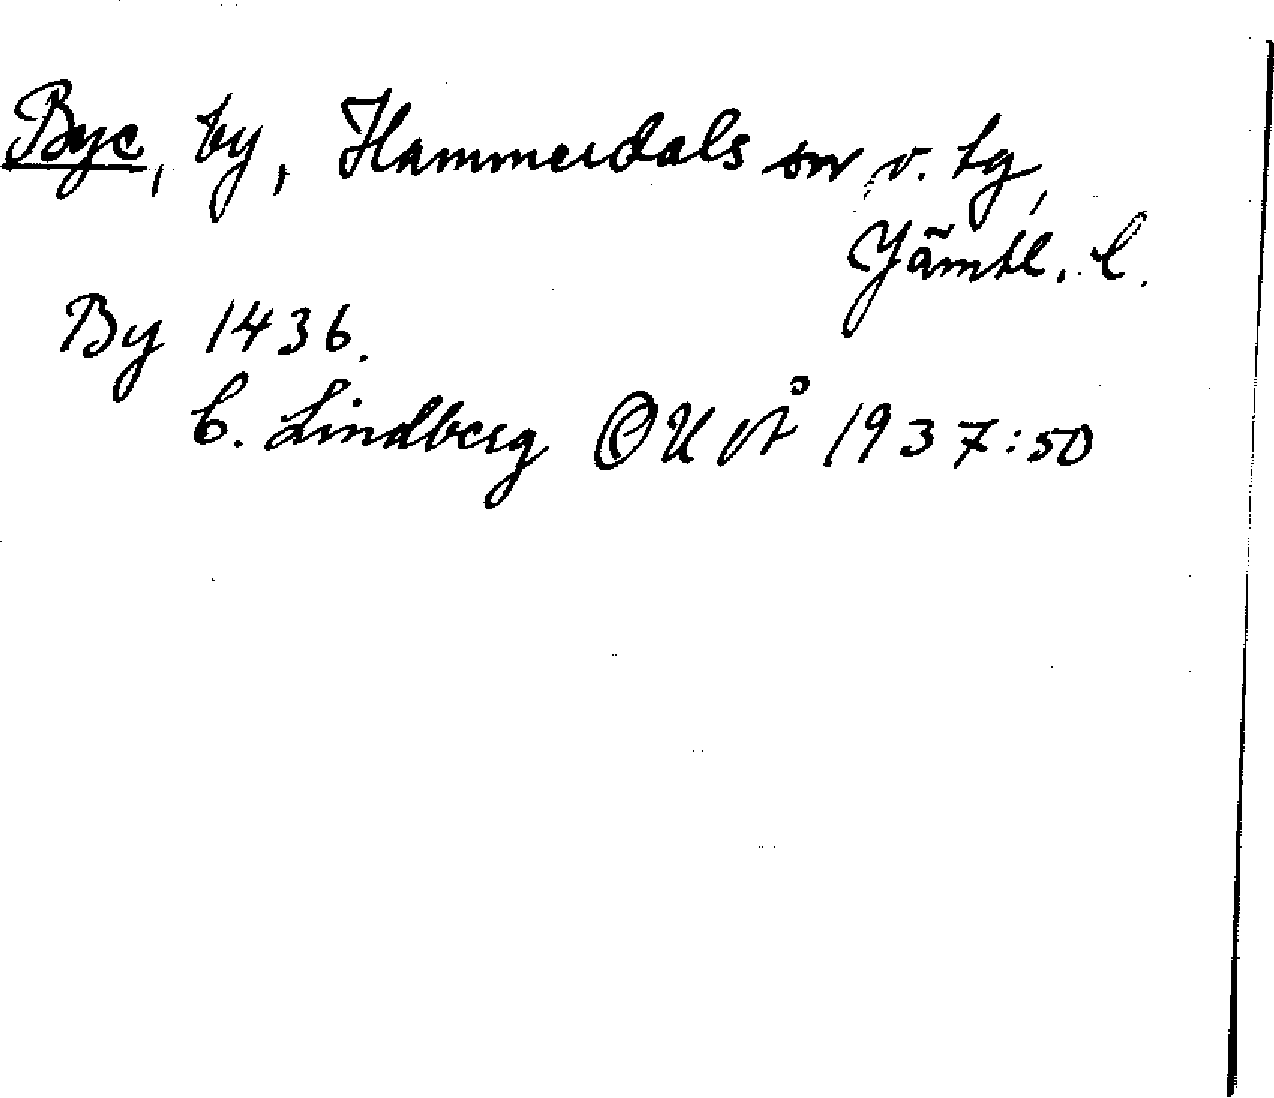 Bye, by, Hammerdals sn o. tg,
Jämtl. l.
By 1436.
C. Lindberg OUÅ 1937:50